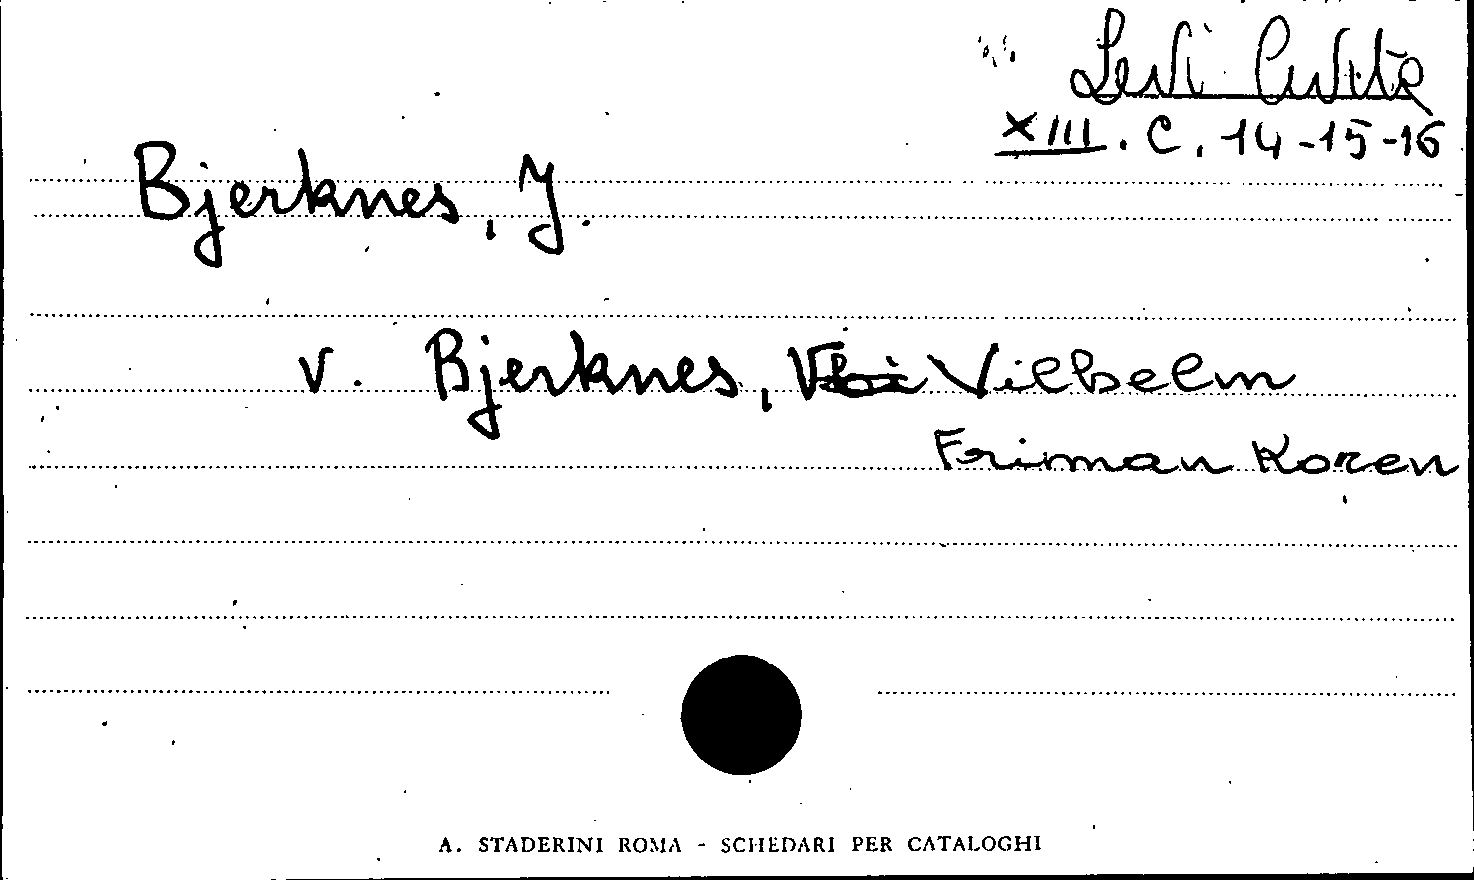 Levi Civita
XIII. C. 14-15-16
Bjerknes, J.
v. Bjerknes, Vilhelm
Friman Koren
A. STADERINI ROMA - SCHEDARI PER CATALOGHI